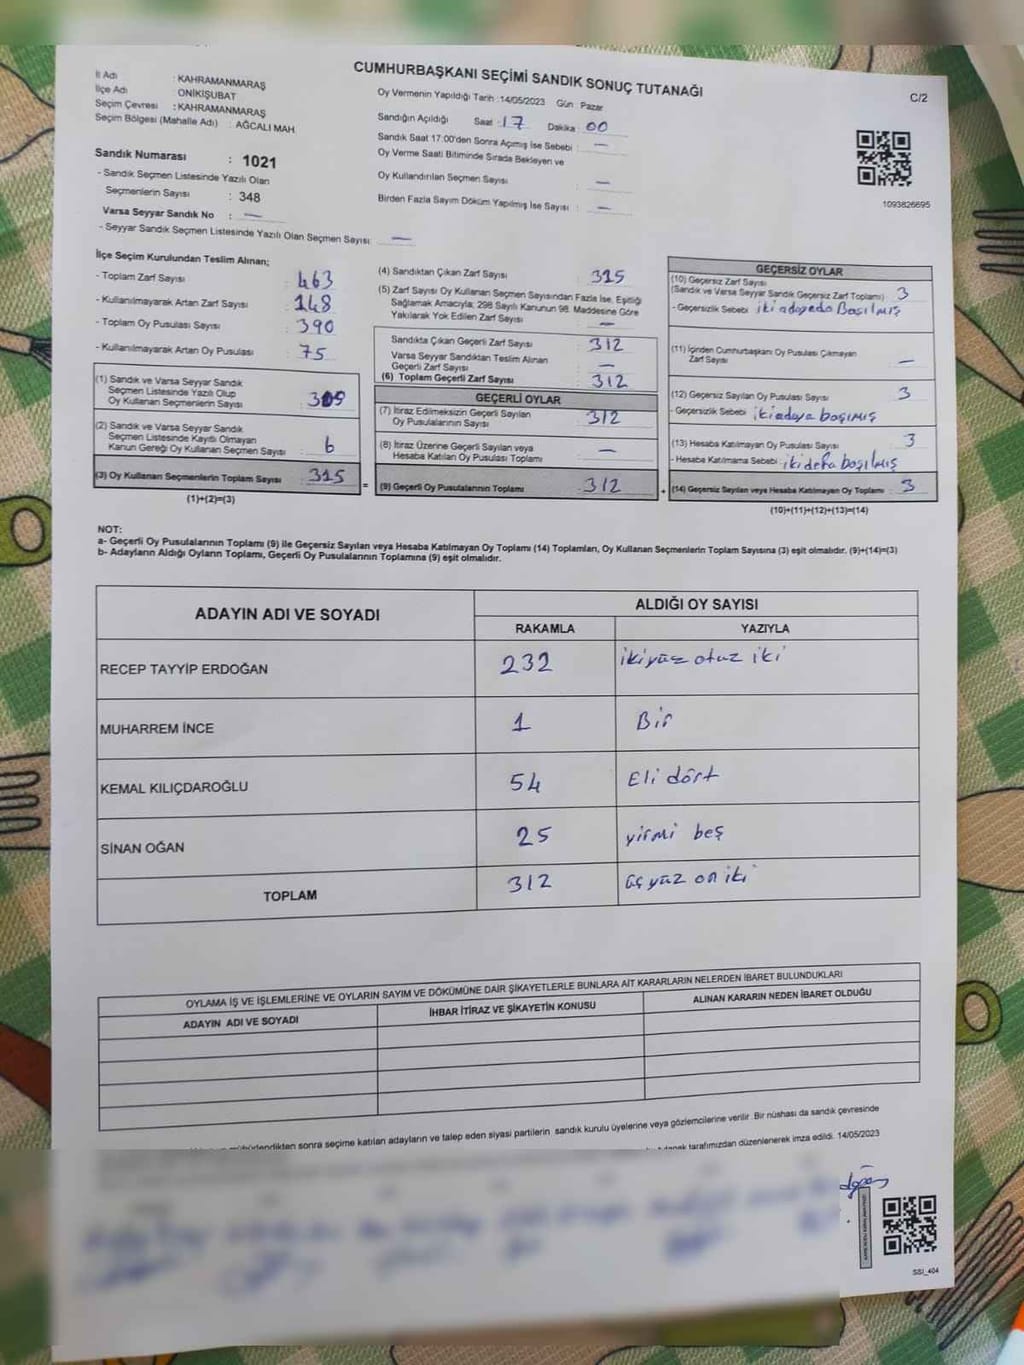 CUMHURBAŞKANI SEÇİMİ SANDIK SONUÇ TUTANAĞI
C/2
İl Adı : KAHRAMANMARAŞ
İlçe Adı : ONİKİŞUBAT
Seçim Çevresi : KAHRAMANMARAŞ
Seçim Bölgesi (Mahalle Adı) : AĞCALI MAH
Sandık Numarası : 1021
- Sandık Seçmen Listesinde Yazılı Olan
Seçmenlerin Sayısı : 348
Varsa Seyyar Sandık No : —
- Seyyar Sandık Seçmen Listesinde Yazılı Olan Seçmen Sayısı: —
Oy Vermenin Yapıldığı Tarih :14/05/2023 Gün : Pazar
Sandığın Açıldığı Saat : 17 Dakika : 00
Sandık Saat 17:00'den Sonra Açımış İse Sebebi : —
Oy Verme Saati Bitiminde Sırada Bekleyen ve
Oy Kullandırılan Seçmen Sayısı : —
Birden Fazla Sayım Döküm Yapılmış İse Sayısı : —
1093826695
İlçe Seçim Kurulundan Teslim Alınan;
- Toplam Zarf Sayısı : 463
- Kullanılmayarak Artan Zarf Sayısı : 148
- Toplam Oy Pusulası Sayısı : 390
- Kullanılmayarak Artan Oy Pusulası : 75
(1) Sandık ve Varsa Seyyar Sandık
Seçmen Listesinde Yazılı Olup
Oy Kullanan Seçmenlerin Sayısı : 309
(2) Sandık ve Varsa Seyyar Sandık
Seçmen Listesinde Kayıtlı Olmayan
Kanun Gereği Oy Kullanan Seçmen Sayısı : 6
(3) Oy Kullanan Seçmenlerin Toplam Sayısı : 315
(1)+(2)=(3)
(4) Sandıktan Çıkan Zarf Sayısı : 315
(5) Zarf Sayısı Oy Kullanan Seçmen Sayısından Fazla İse, Eşitliği
Sağlamak Amacıyla; 298 Sayılı Kanunun 98. Maddesine Göre
Yakılarak Yok Edilen Zarf Sayısı : —
Sandıkta Çıkan Geçerli Zarf Sayısı : 312
Varsa Seyyar Sandıktan Teslim Alınan
Geçerli Zarf Sayısı : —
(6) Toplam Geçerli Zarf Sayısı : 312
GEÇERLİ OYLAR
(7) İtiraz Edilmeksizin Geçerli Sayılan
Oy Pusulalarının Sayısı : 312
(8) İtiraz Üzerine Geçerli Sayılan veya
Hesaba Katılan Oy Pusulası Toplamı : —
= (9) Geçerli Oy Pusulalarının Toplamı : 312
GEÇERSİZ OYLAR
(10) Geçersiz Zarf Sayısı
(Sandık ve Varsa Seyyar Sandık Geçersiz Zarf Toplamı) : 3
- Geçersizlik Sebebi : iki adayada Basılmış
(11) İçinden Cumhurbaşkanı Oy Pusulası Çıkmayan
Zarf Sayısı : —
(12) Geçersiz Sayılan Oy Pusulası Sayısı : 3
- Geçersizlik Sebebi : iki adaya başımış
(13) Hesaba Katılmayan Oy Pusulası Sayısı : 3
- Hesaba Katılmama Sebebi : iki defa başılmış
+ (14) Geçersiz Sayılan veya Hesaba Katılmayan Oy Toplamı : 3
(10)+(11)+(12)+(13)=(14)
NOT:
a- Geçerli Oy Pusulalarının Toplamı (9) ile Geçersiz Sayılan veya Hesaba Katılmayan Oy Toplamı (14) Toplamları, Oy Kullanan Seçmenlerin Toplam Sayısına (3) eşit olmalıdır. (9)+(14)=(3)
b- Adayların Aldığı Oyların Toplamı, Geçerli Oy Pusulalarının Toplamına (9) eşit olmalıdır.
ADAYIN ADI VE SOYADI ALDIĞI OY SAYISI
RAKAMLA YAZIYLA
RECEP TAYYİP ERDOĞAN 232 ikiyüz otuz iki
MUHARREM İNCE 1 Bir
KEMAL KILIÇDAROĞLU 54 Eli dört
SİNAN OĞAN 25 yirmi beş
TOPLAM 312 üç yüz on iki
OYLAMA İŞ VE İŞLEMLERİNE VE OYLARIN SAYIM VE DÖKÜMÜNE DAİR ŞİKAYETLERLE BUNLARA AİT KARARLARIN NELERDEN İBARET BULUNDUKLARI
ADAYIN ADI VE SOYADI İHBAR İTİRAZ VE ŞİKAYETİN KONUSU ALINAN KARARIN NEDEN İBARET OLDUĞU
mühürlendikten sonra seçime katılan adayların ve talep eden siyasi partilerin sandık kurulu üyelerine veya gözlemcilerine verilir. Bir nüshası da sandık çevresinde
tarafımızdan düzenlenerek imza edildi. 14/05/2023
SSI_404